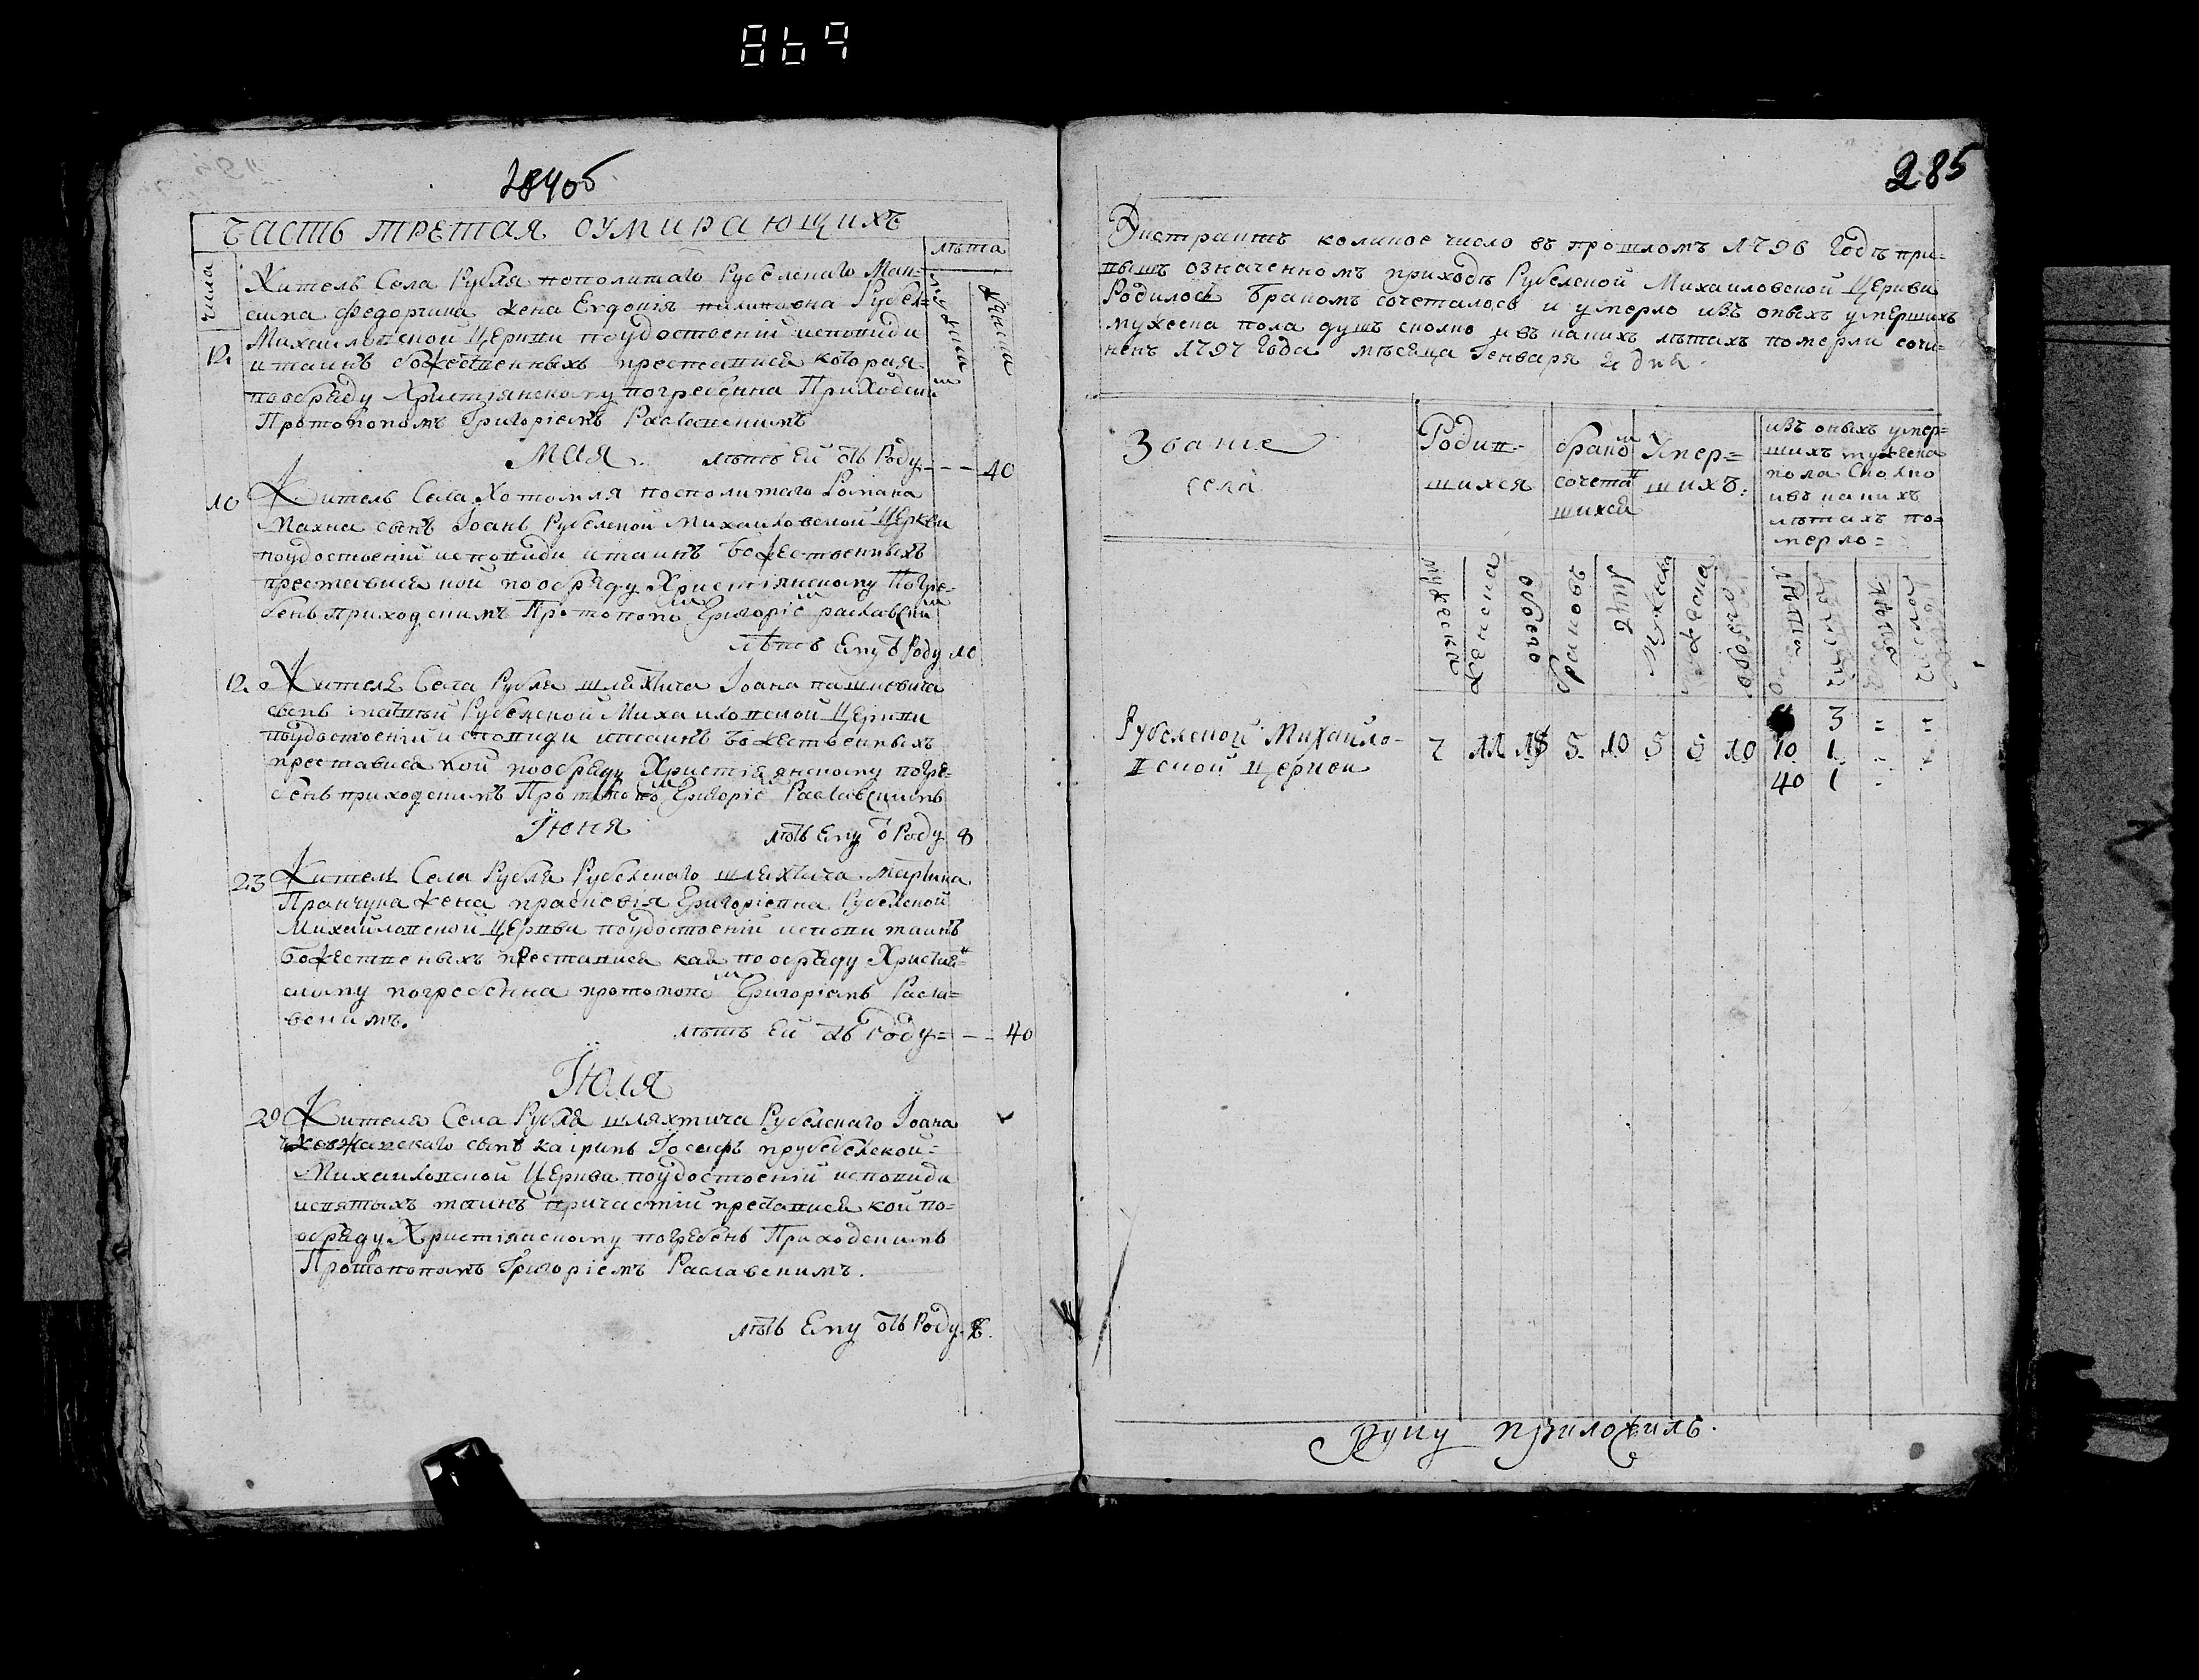 869
284об
ЧАСТЬ ТРЕТАЯ ОУМИРАЮЩИХЪ
числа
лѣта
мужска
женска
12. Житель Села Рубля посполитаго Рубелскаго Мак-
сима Федорчика жена Евдокія Рубел-
Михаиловской Церкви поудостоеній исповиди
и таинъ божественныхъ преставися которая
пообряду Христіянскому погребенна Приходски м
Протопопомъ Григоріемъ Раславскимъ
Мая. лѣтъ Ей отъ Роду - - - 40
10 Житель Села Хотомля посполитаго Романа
Махна сынъ Іоанъ Рубелской Михаиловской Церкви
поудостоеній исповиди итаинъ божественныхъ
преставися кой пообряду Христіянскому Погре-
бенъ приходскимъ Протопопо м Григоріе м раславски м
лѣтъ Ему ѿ Роду 10
12. Жителя Села Рубля шляхтича Іоана пашкевича
сынъ Рубелской Михаиловской Церкви
поудостоеній исповиди итаинъ божественныхъ
преставися кой пообряду Христіянскому погре-
бенъ приходскимъ Протопопо м Григоріе м Раславскимъ
Іюня лѣтъ Ему ѿ Роду 8
23 Жителя Села Рубля Рубелскаго шляхтича Мартина
жена праскевія Григоріевна Рубелской
Михайловской Церкви поудостоеній испови таинъ
божественыхъ преставися кая пообряду Христия н
скому погребенна протопопо м Григоріемъ Расла-
вскимъ.
лѣтъ Ей отъ Роду = - - 40
Іюля
29 Жителя Села Рубля шляхтича Рубелскаго Іоана
сынъ Іосифъ
Михаиловской Церкви поудостоеній исповиди
исвятыхъ таинъ причастій преставися кой по-
обряду Христіянскому погребенъ Приходскимъ
Протопопомъ Григоріемъ Раславскимъ.
лѣтъ Ему отъ Роду 8.
285
Экстрактъ коликое число въ прошломъ 1796 Годѣ при-
означенномъ приходѣ Рубелской Михаиловской Церкви
Родилось бракомъ сочеталось и умерло изъ оныхъ умершихъ
мужеска пола душъ сколко ивъ какихъ лѣтахъ померли сочи-
ненъ 1797 Года мѣсяца Генваря 2 дня.
Званіе
села
Родив-
шихся
брако м
сочета в
шихся
Умер=
шихъ:
изъ оныхъ умер=
шихъ мужеска
пола Сколко
ивъ какихъ
лѣтахъ по=
мерло =
мужеска
женска
обоего
браковъ
Лицъ
Мужеска
женска
обоего
Рубелской Михайло-
вской Церкви
7 11 18 5 10 5 5 10
3 = =
10 1
40 1
Руку приложилъ.